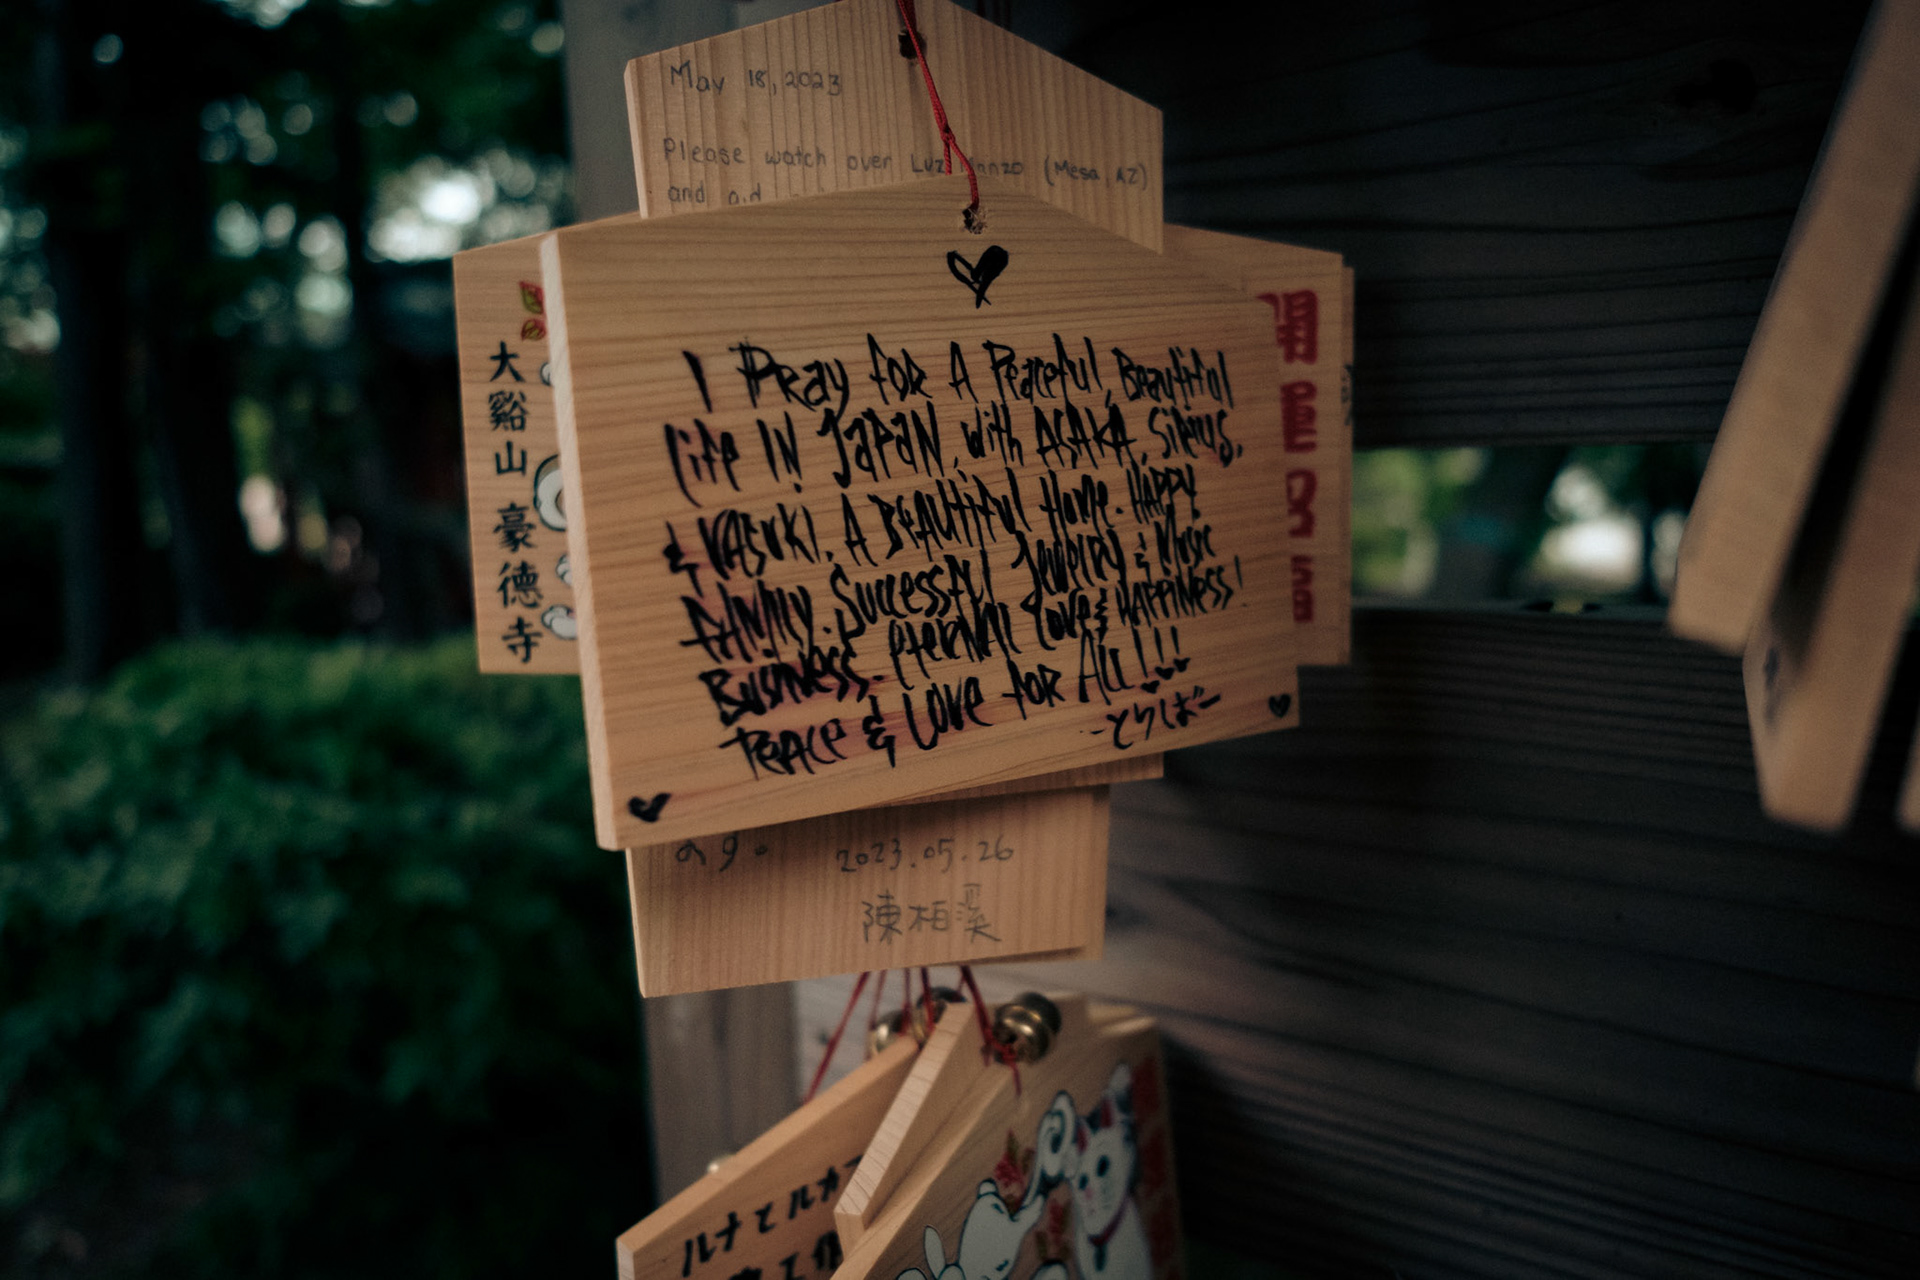 May 18, 2023
Please watch over Luz Manzo (Mesa, AZ)
and aid
大谿山 豪德寺
I Pray for A Peaceful, Beautiful
life IN JAPAN, with ASAKA, Sirius,
& KASUKI. A BEAUtiful Home. HAPPY
fAMily. Successful Jewelry & Music
Business. eternal love & HAPPINESS!
PEACE & Love for All!!!
-とりばー
2023.05.26
陳柏溪
ルナとルカ